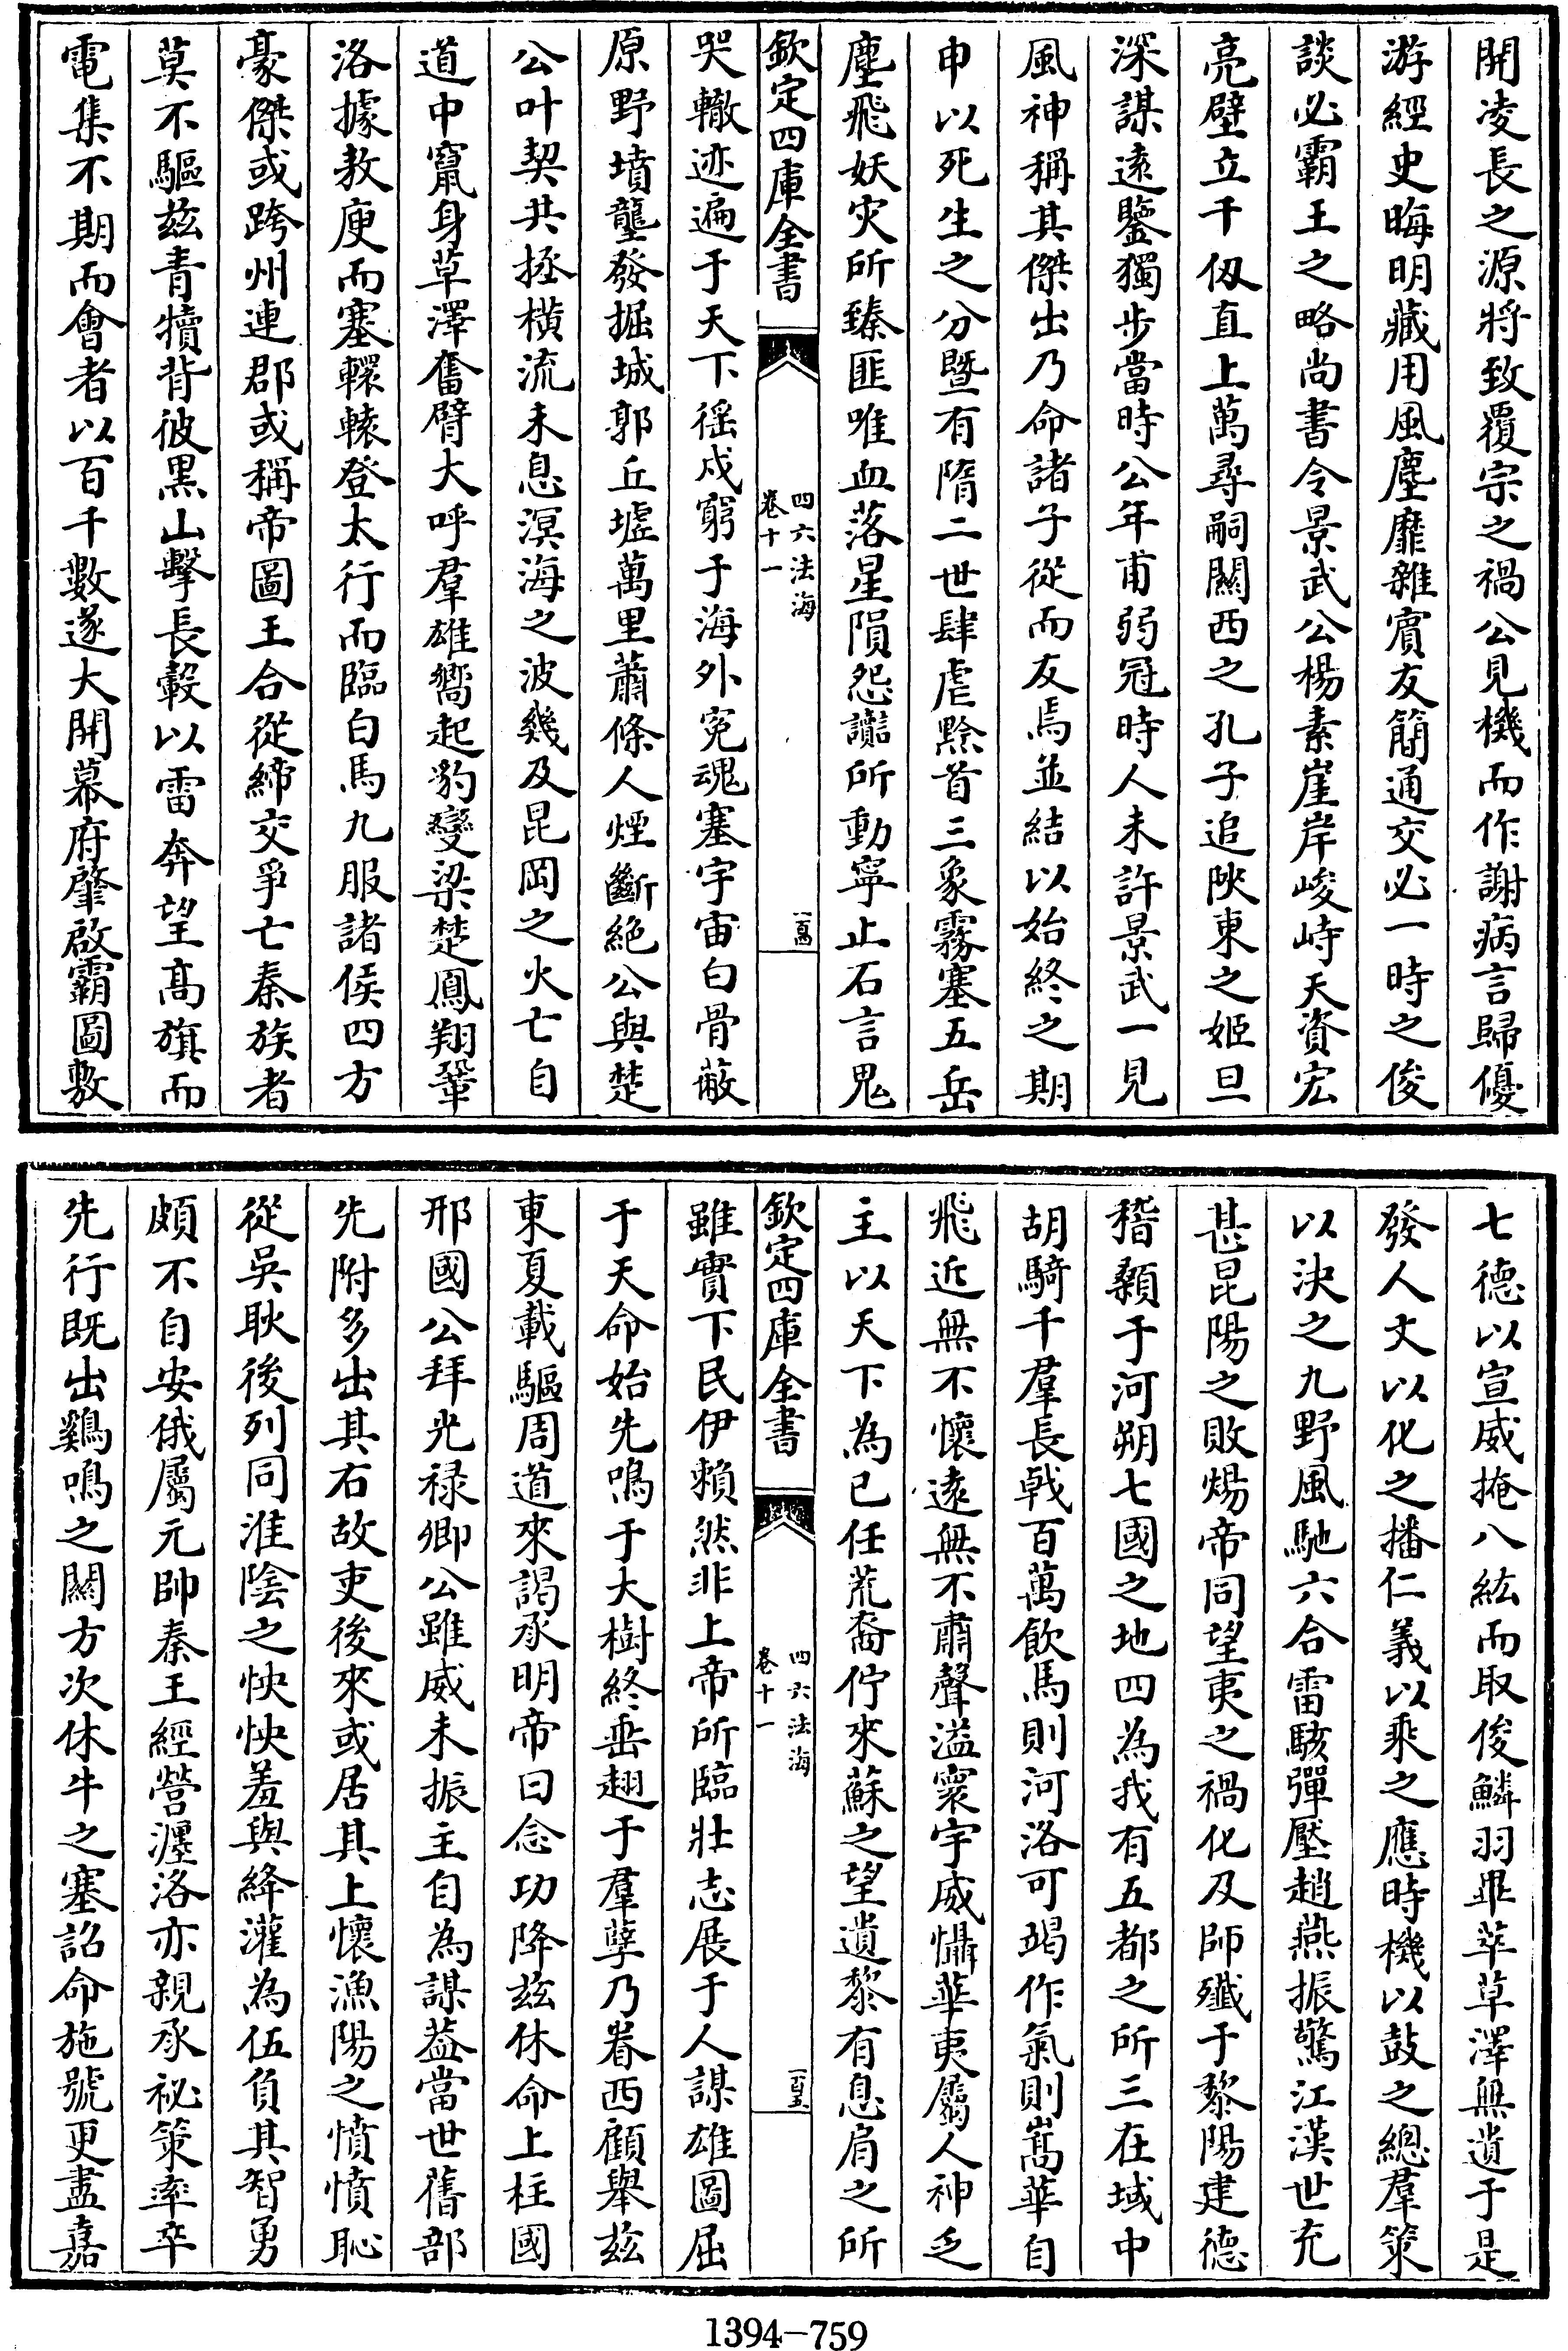 開凌長之源將致覆宗之禍公見機而作謝病言歸優
游經史晦明藏用風塵靡雜賓友簡通交必一時之俊
談必霸王之略尚書令景武公楊素崖岸峻峙天資宏
亮壁立千仭直上萬尋嗣關西之孔子追陝東之姬旦
深謀遠鑒獨步當時公年甫弱冠時人未許景武一見
風神稱其傑出乃命諸子從而友焉並結以始終之期
申以死生之分暨有隋二世肆虐黔首三象霧塞五岳
塵飛妖灾所臻匪唯血落星隕怨讟所動寧止石言鬼
欽定四庫全書
四六法海
卷十一
一百四
哭轍迹遍于天下徭戍窮于海外寃魂塞宇宙白骨蔽
原野墳壟發掘城郭丘墟萬里蕭條人煙斷絶公與楚
公叶契共拯橫流未息溟海之波幾及昆岡之火亡自
道中竄身草澤奮臂大呼羣雄嚮起豹變梁楚鳳翔鞏
洛據敖庾而塞轘轅登太行而臨白馬九服諸侯四方
豪傑或跨州連郡或稱帝圖王合從締交爭亡秦族者
莫不驅兹青犢背彼黒山擊長轂以雷奔望髙旗而
電集不期而會者以百千數遂大開幕府肇啟霸圖敷
七德以宣威掩八紘而取俊鱗羽畢萃草澤無遺于是
發人文以化之播仁義以乘之應時機以鼓之總羣策
以決之九野風馳六合雷駭彈壓趙燕振驚江漢世充
甚昆陽之敗煬帝同望夷之禍化及師殲于黎陽建德
稽顙于河朔七國之地四為我有五都之所三在域中
胡騎千羣長戟百萬飲馬則河洛可竭作氣則嵩華自
飛近無不懷遠無不肅聲溢寰宇威懾華夷屬人神乏
主以天下為已任荒裔佇來蘇之望遺黎有息肩之所
欽定四庫全書
四六法海
卷十一
一百五
雖實下民伊賴然非上帝所臨壯志展于人謀雄圖屈
于天命始先鳴于大樹終垂翅于羣孽乃眷西顧舉兹
東夏載驅周道來謁承明帝曰念功降兹休命上柱國
邢國公拜光禄卿公雖威未振主自為謀葢當世舊部
先附多出其右故吏後來或居其上懷漁陽之憤憤恥
從吳耿後列同淮隂之怏怏羞與絳灌為伍負其智勇
頗不自安俄屬元帥秦王經營瀍洛亦親承袐策率卒
先行既出鷄鳴之關方次休牛之塞詔命施號更盡嘉
1394-759